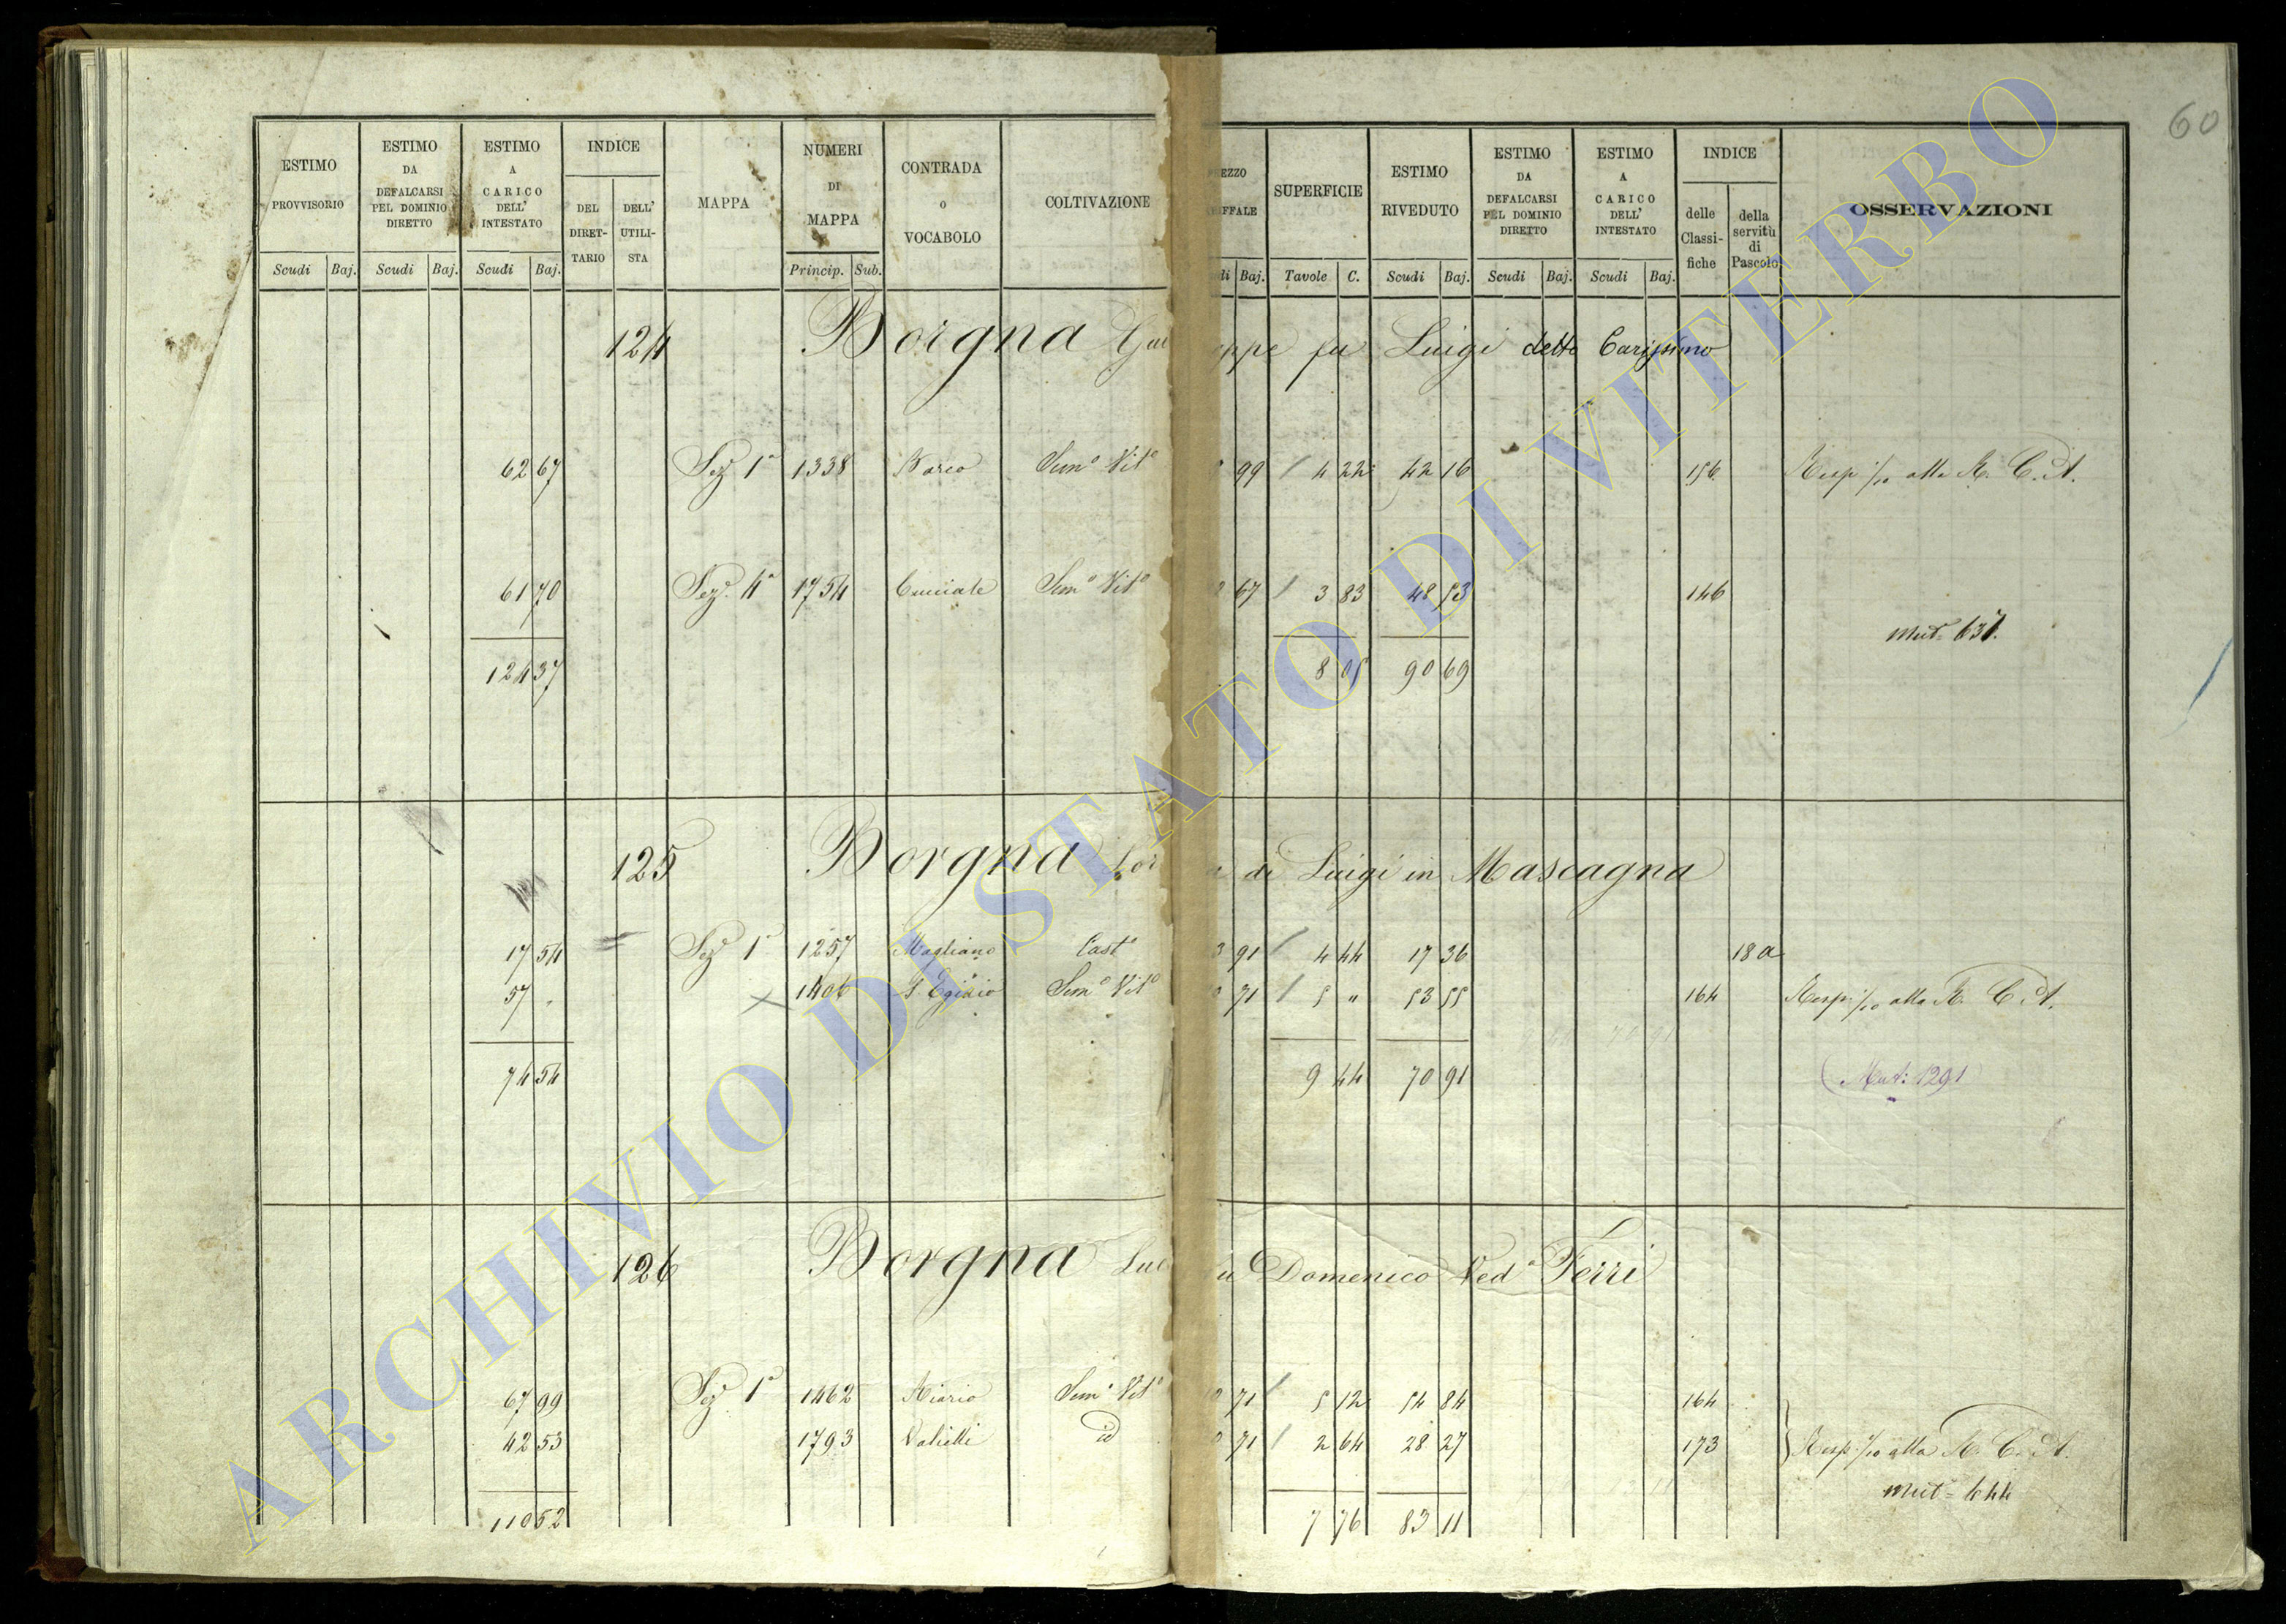 60
ESTIMO PROVVISORIO Scudi Baj. ESTIMO DA DEFALCARSI PEL DOMINIO DIRETTO Scudi Baj. ESTIMO A CARICO DELL' INTESTATO Scudi Baj. INDICE DEL DIRET-TARIO DELL' UTILI-STA MAPPA NUMERI DI MAPPA Princip. Sub. CONTRADA o VOCABOLO COLTIVAZIONE
Baj. SUPERFICIE Tavole C. ESTIMO RIVEDUTO Scudi Baj. ESTIMO DA DEFALCARSI PEL DOMINIO DIRETTO Scudi Baj. ESTIMO A CARICO DELL' INTESTATO Scudi Baj. INDICE delle Classi-fiche della servitù di Pascolo OSSERVAZIONI
124 Borgna fu Luigi detto Carissimo
62 67 Sez. 1a 1338 Semo Vito 99 4 22 42 16 156 Resp. 1/10 alla R. C. A.
61 70 Sez. 4a 1754 Semo Vito 67 3 83 48 53 146
Mut=
124 37 8 05 90 69
125 Borgna di Luigi in Mascagna
17 54 Sez. 1a 1257 Magliano Casto 91 4 44 17 36 18a
57 . 1406 S. Egidio Semo Vito 71 5 " 53 55 164 Resp. 1/10 alla R. C. A.
74 54 9 44 70 91 (Mut: 1291)
126 Borgna Domenico Veda Ferri
67 99 Sez. 1a 1462 Riario Semo Vito 71 5 12 54 84 164
42 53 1793 id 71 2 64 28 27 173 Resp. 1/10 alla R. C. A.
Mut=
110 52 7 76 83 11
ARCHIVIO DI STATO DI VITERBO